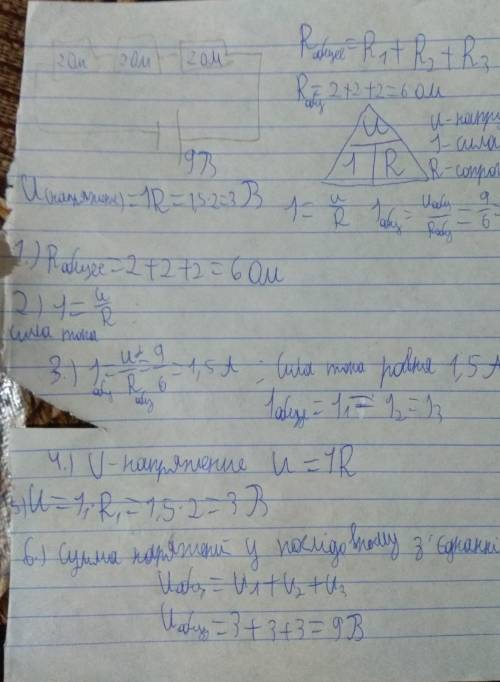 2 Ом 2 Ом 2 Ом
9 В
R общее = R1 + R2 + R3
R общ = 2 + 2 + 2 = 6 Ом
U
I R
U - напря
I - сила
R - сопро
U (напряжение) = IR = 1,5 · 2 = 3 В
I = U/R I общ = U общ/R общ = 9/6
1.) R общее = 2 + 2 + 2 = 6 Ом
2) I = U/R
сила тока
3.) I общ = U/R общ = 9/6 = 1,5 А ; Сила тока ровня 1,5 А
I общ = I1 = I2 = I3
4.) U - напряжение U = IR
5) U = I1 · R1 = 1,5 · 2 = 3 В
6.) Сумма напряжений у послідовному з'єднанні
U общ = U1 + U2 + U3
U общ = 3 + 3 + 3 = 9 В